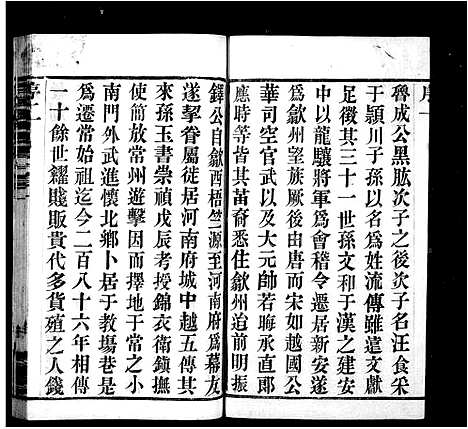 序一
魯成公黑肱次子之後次子名汪食采
于潁川子孫以名爲姓流傳雖遺文獻
足徵其三十一世孫文和于漢之建安
中以龍驤將軍爲會稽令遷居新安遂
爲歙州望族歷隋唐而宋如越國公
華司空官武以及大元帥若晦承直郎
應時等皆其苗裔悉住歙州迨前明振
鐸公自歙西梧竺源至河南府爲幕友
遂挈眷屬徙居河南府城中越五傳其
來孫玉書崇禎戊辰考授錦衣衛鎮撫
使簡放常州遊擊因而擇地于常之小
南門外武進懷北鄉卜居于教塲巷是
爲遷常始祖迄今二百八十六年相傳
一十餘世糴賤販貴代多貨殖之人錢
序二